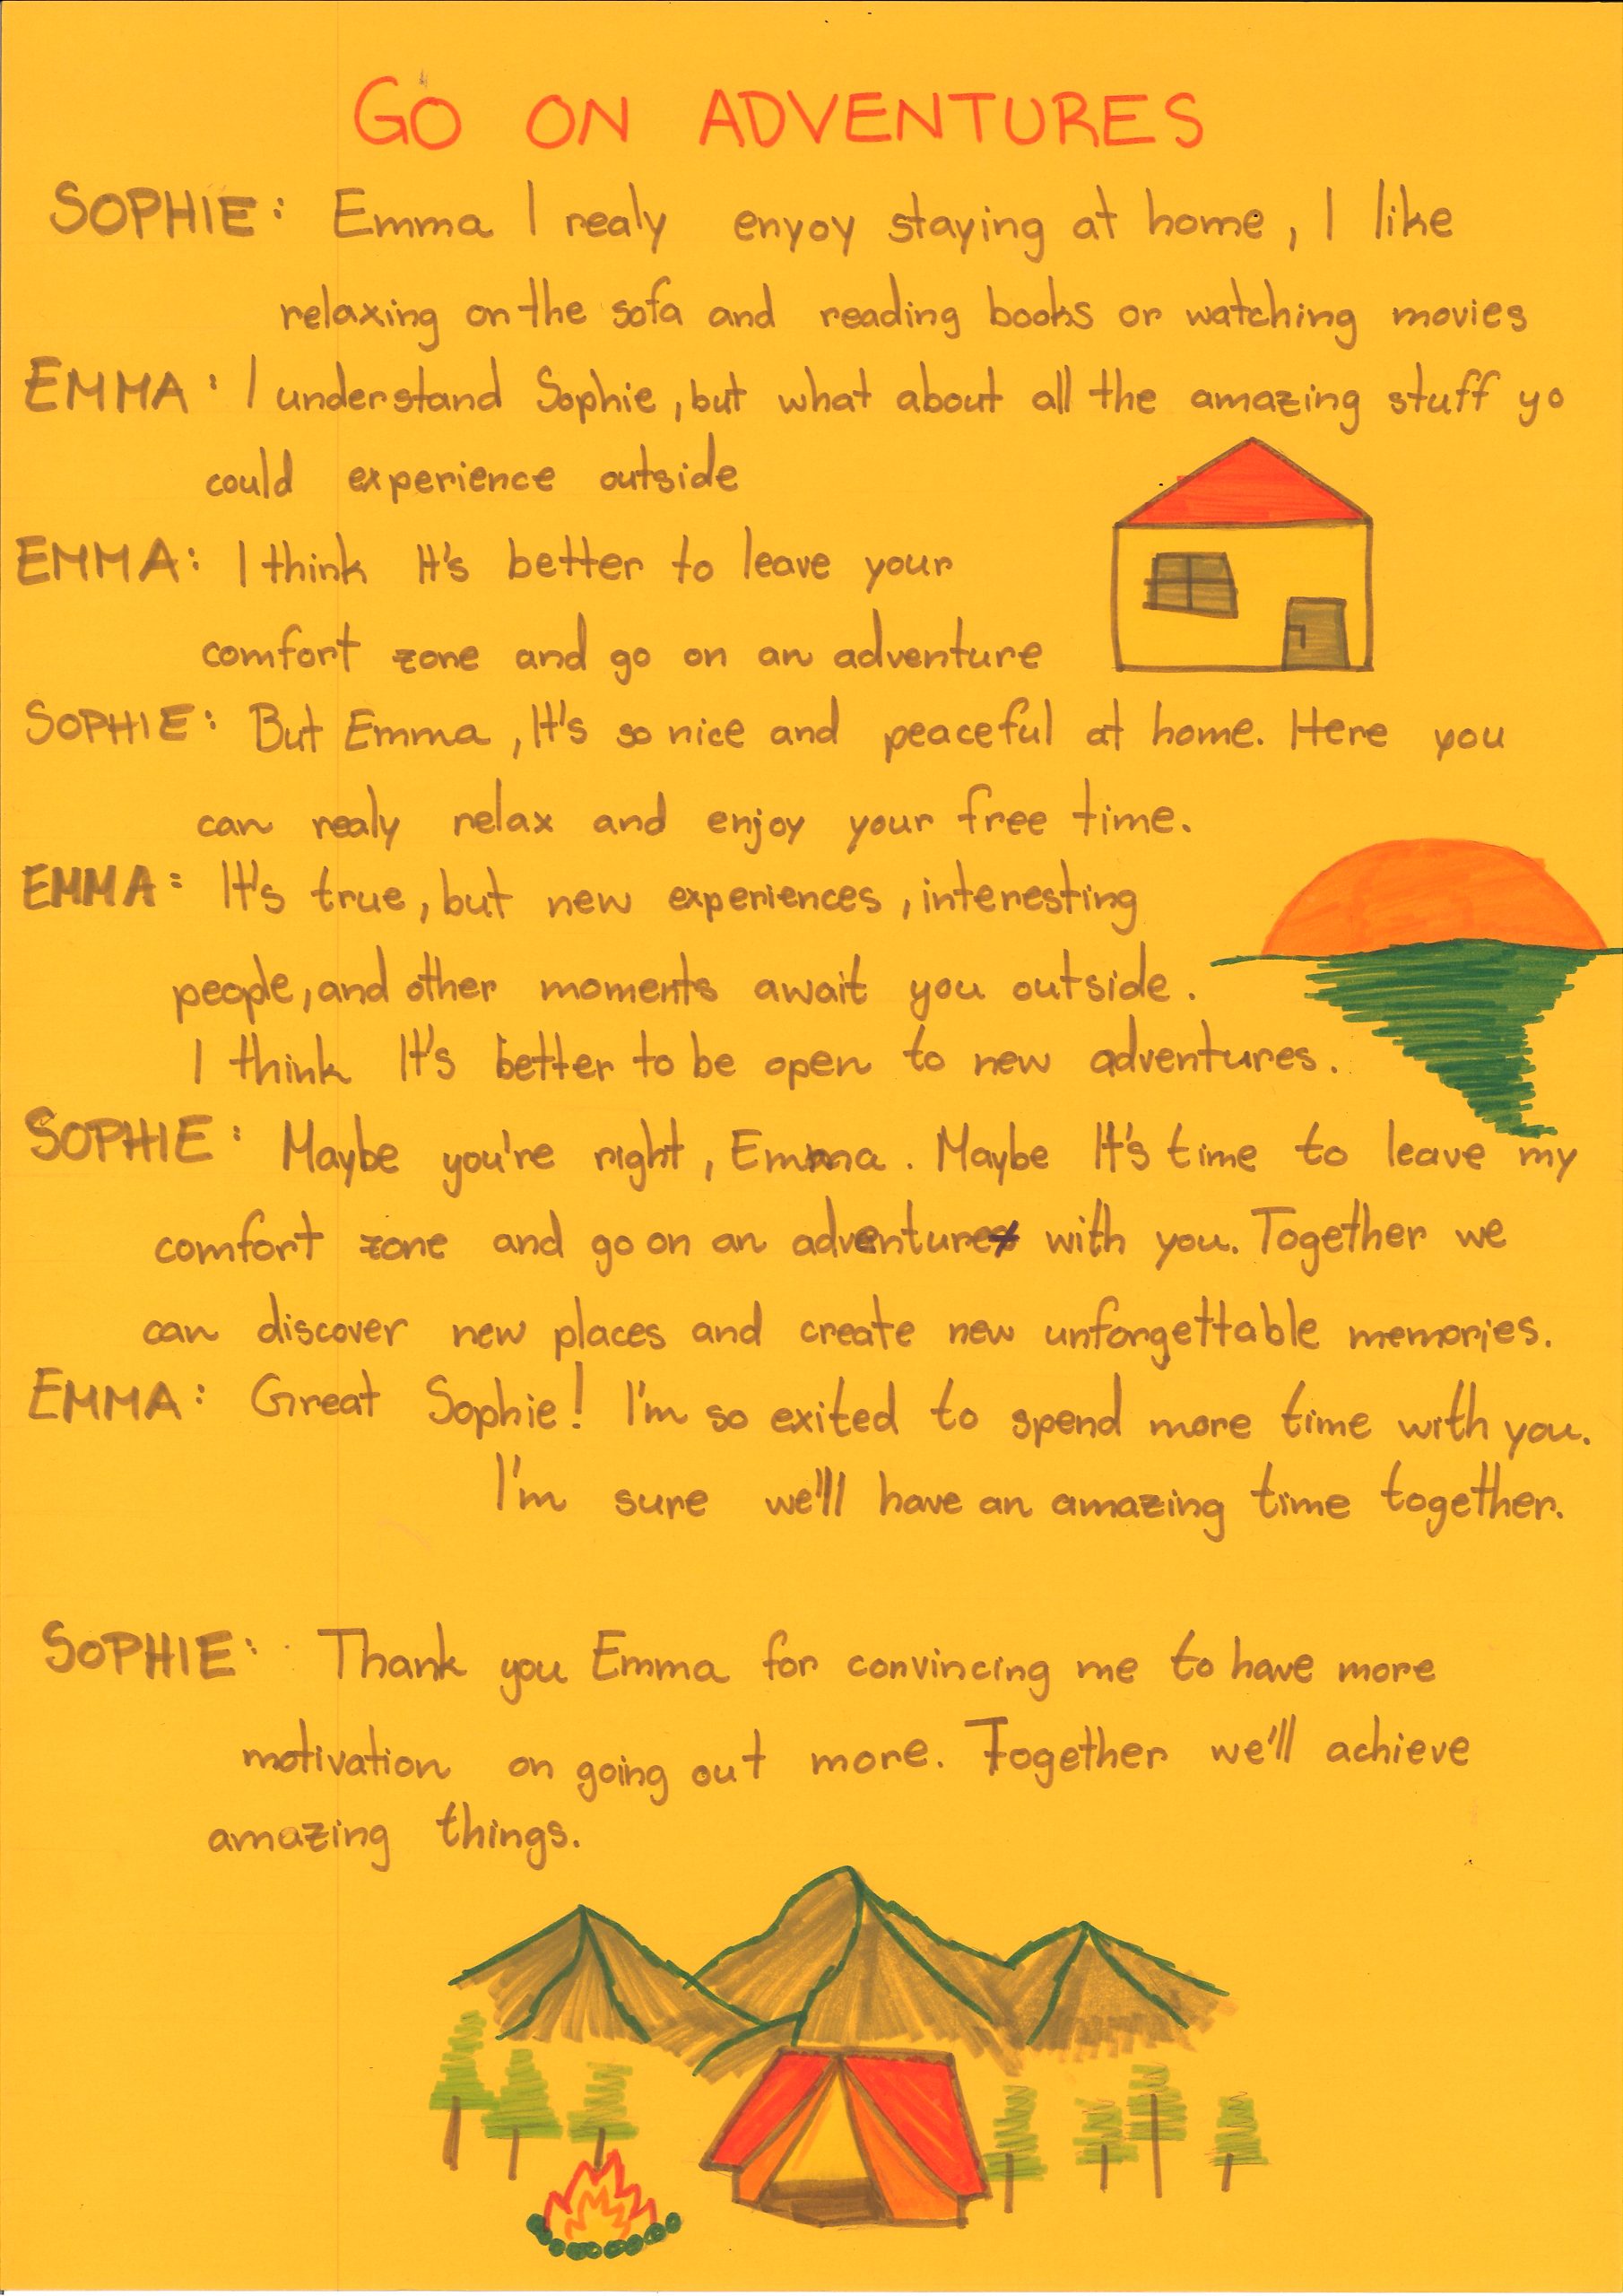 GO ON ADVENTURES
SOPHIE: Emma I realy enyoy staying at home, I like
relaxing on the sofa and reading books or watching movies
EMMA: I understand Sophie, but what about all the amazing stuff yo
could experience outside
EMMA: I think It's better to leave your
comfort zone and go on an adventure
SOPHIE: But Emma, It's so nice and peaceful at home. Here you
can realy relax and enjoy your free time.
EMMA: It's true, but new experiences, interesting
people, and other moments await you outside.
I think It's better to be open to new adventures.
SOPHIE: Maybe you're right, Emma. Maybe It's time to leave my
comfort zone and go on an adventure with you. Together we
can discover new places and create new unforgettable memories.
EMMA: Great Sophie! I'm so exited to spend more time with you.
I'm sure we'll have an amazing time together.
SOPHIE: Thank you Emma for convincing me to have more
motivation on going out more. Together we'll achieve
amazing things.